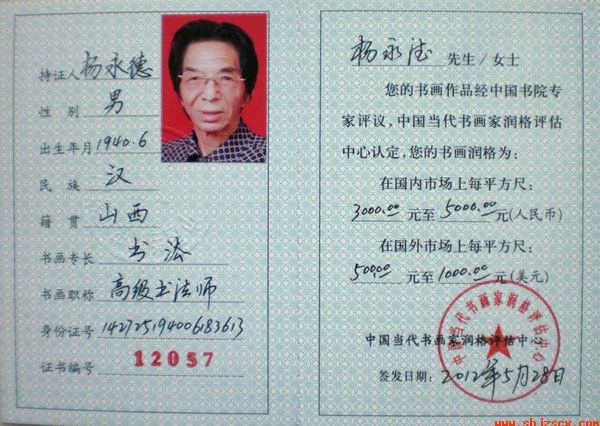 持证人 杨永德
性 别 男
出生年月 1940.6
民 族 汉
籍 贯 山西
书画专长 书法
书画职称 高级书法师
身份证号 142725194006183613
证书编号 12057
杨永德 先生/女士
您的书画作品经中国书院专
家评议，中国当代书画家润格评估
中心认定，您的书画润格为：
在国内市场上每平方尺：
3000.00 元至 5000.00 元(人民币)
在国外市场上每平方尺：
500.00 元至 1000.00 元(美元)
中国当代书画家润格评估中心
中国当代书画家润格评估中心
签发日期：2012年5月28日
www.shjzscx.com